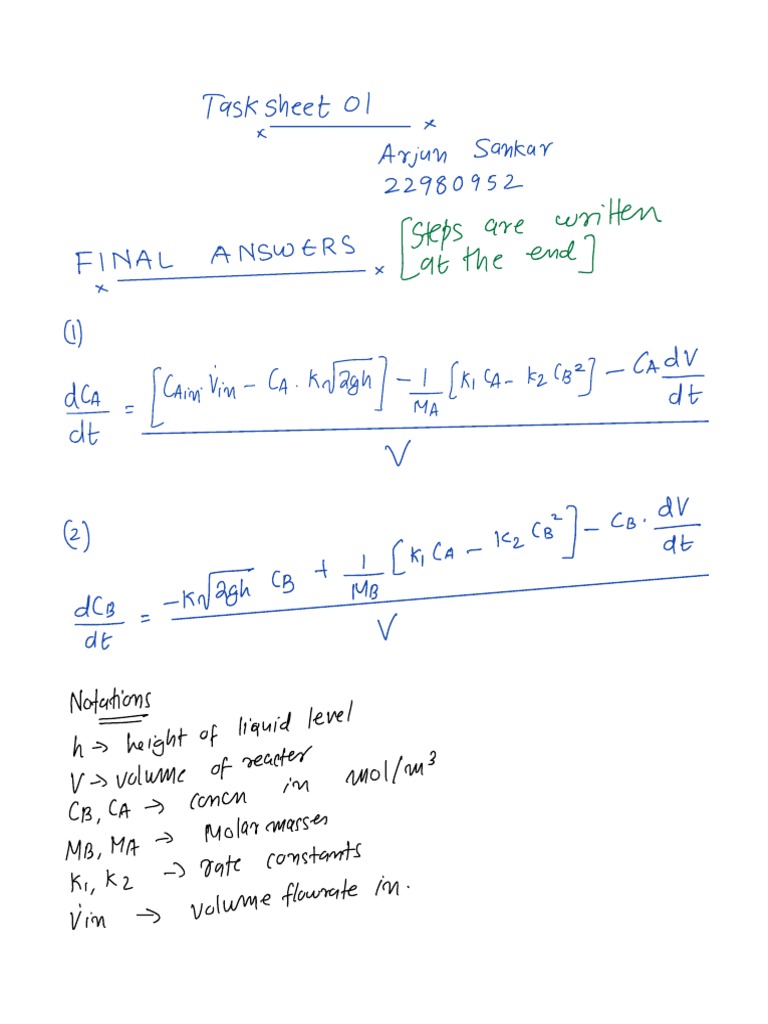 Task sheet 01
Arjun Sankar
22980952
FINAL ANSWERS [Steps are written
at the end]
(1)
dCA/dt = ([CAin V̇in - CA . K√2gh] - 1/MA [K1 CA - K2 CB²] - CA dV/dt) / V
(2)
dCB/dt = (-K√2gh CB + 1/MB [K1 CA - K2 CB²] - CB . dV/dt) / V
Notations
h → height of liquid level
V → volume of reacter
CB, CA → concn in mol/m³
MB, MA → Molar masses
K1, K2 → rate constants
V̇in → volume flowrate in.